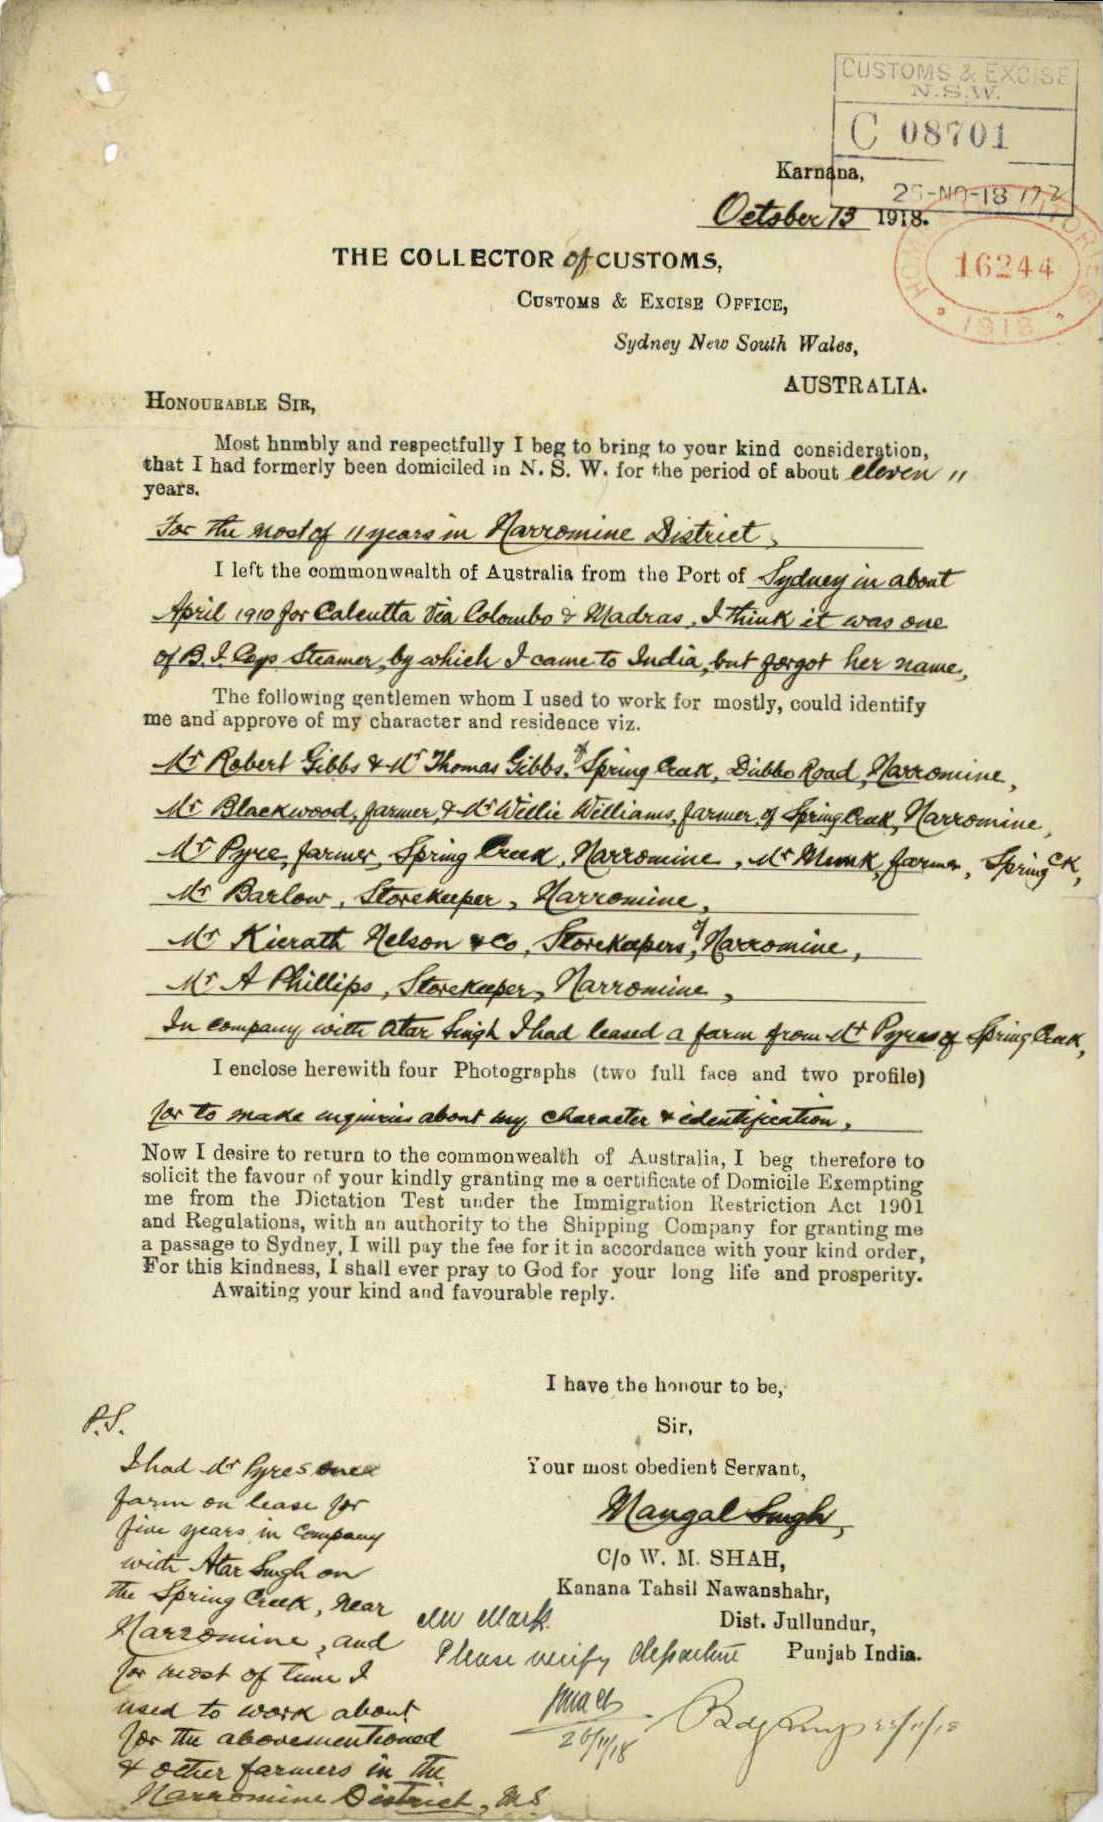 CUSTOMS & EXCISE
N.S.W.
C 08701
25-NO-18
Karnana,
October 13 1918.
HOME
16244
1918
THE COLLECTOR of CUSTOMS,
CUSTOMS & EXCISE OFFICE,
Sydney New South Wales,
AUSTRALIA.
HONOURABLE SIR,
Most hnmbly and respectfully I beg to bring to your kind consideration,
that I had formerly been domiciled in N. S. W. for the period of about eleven 11
years.
For the most of 11 years in Narromine District,
I left the commonwealth of Australia from the Port of Sydney in about
April 1910 for Calcutta via Colombo & Madras, I think it was one
of B.I. Coys Steamer, by which I came to India, but forgot her name,
The following gentlemen whom I used to work for mostly, could identify
me and approve of my character and residence viz.
Mr Robert Gibbs & Mr Thomas Gibbs, of Spring Creek, Dubbo Road, Narromine,
Mr Blackwood, farmer, & Mr Willie Williams, farmer, of Spring Creek, Narromine,
Mr Pyre, farmer, Spring Creek, Narromine, Mr Munk, farmer, Spring CK,
Mr Barlow, Storekeeper, Narromine,
Mr Kierath Nelson & Co, Storekeepers, of Narromine,
Mr A Phillips, Storekeeper, Narromine,
In company with Atar Singh I had leased a farm from Mr Pyres of Spring Creek,
I enclose herewith four Photographs (two full face and two profile)
for to make inquiries about my character & identification.
Now I desire to return to the commonwealth of Australia, I beg therefore to
solicit the favour of your kindly granting me a certificate of Domicile Exempting
me from the Dictation Test under the Immigration Restriction Act 1901
and Regulations, with an authority to the Shipping Company for granting me
a passage to Sydney, I will pay the fee for it in accordance with your kind order,
For this kindness, I shall ever pray to God for your long life and prosperity.
Awaiting your kind and favourable reply.
I have the honour to be,
Sir,
Your most obedient Servant,
Mangal Singh,
C/o W. M. SHAH,
Kanana Tahsil Nawanshahr,
Dist. Jullundur,
Punjab India.
P.S.
I had Mr Pyres
farm on lease for
five years in company
with Atar Singh on
the Spring Creek, near
Narromine, and
for most of time I
used to work about
for the abovementioned
& other farmers in the
Narromine District, M.S.
Mr Mark
Please verify departure
26/11/18